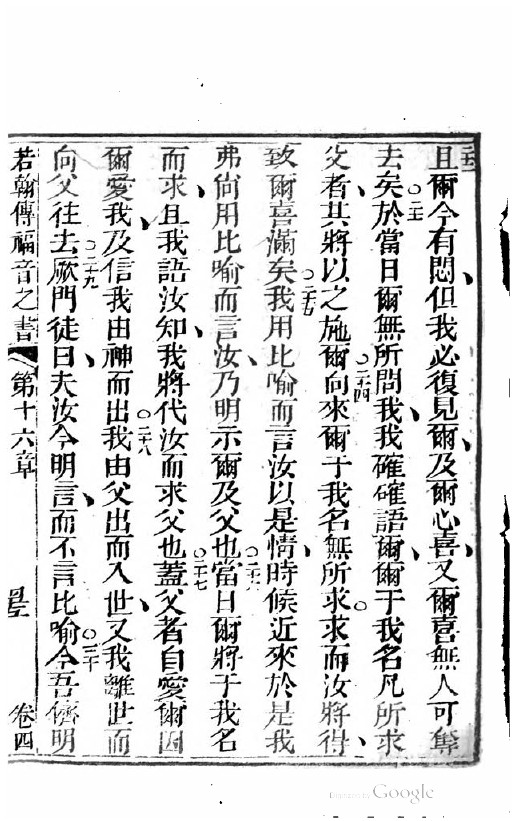 且爾今有悶但我必復見爾及爾心喜又爾喜無人可奪
去矣○二三於當日爾無所問我我確確語爾爾于我名凡所求
父者其將以之施爾○二四向來爾于我名無所求○求而汝將得
致爾喜滿矣○二五我用比喻而言汝以是情時候近來於是我
弗尚用比喻而言汝乃明示爾及父也○二六當日爾將于我名
而求且我語汝知我將代汝而求父也○二七蓋父者自愛爾因
爾愛我及信我由神而出○二八我由父出而入世又我離世而
向父往去○二九厥門徒曰夫汝今明言而不言比喻○三十今吾儕明
若翰傳福音之書 第十六章 卷四
Digitized by Google